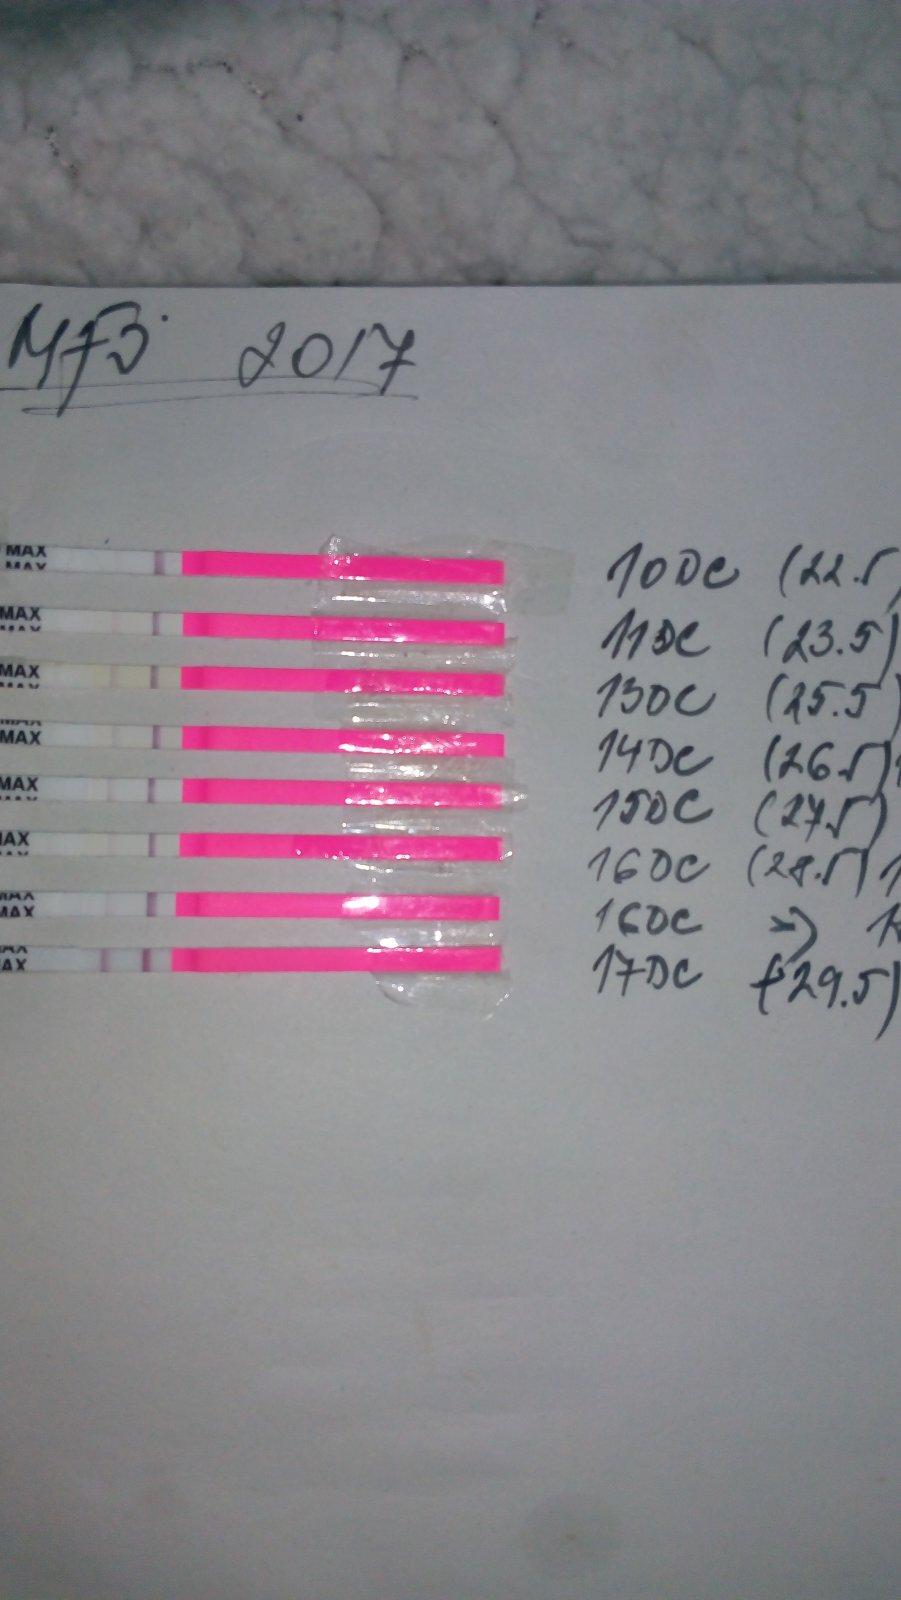 2017
MAX
MAX
10DC (22.5
MAX
MAX
11DC (23.5)
MAX
MAX
13DC (25.5)
MAX
MAX
14DC (26.5)
MAX
MAX
15DC (27.5)
AX
AX
16DC (28.5) 1
MAX
MAX
16DC
AX
AX
17DC (29.5)